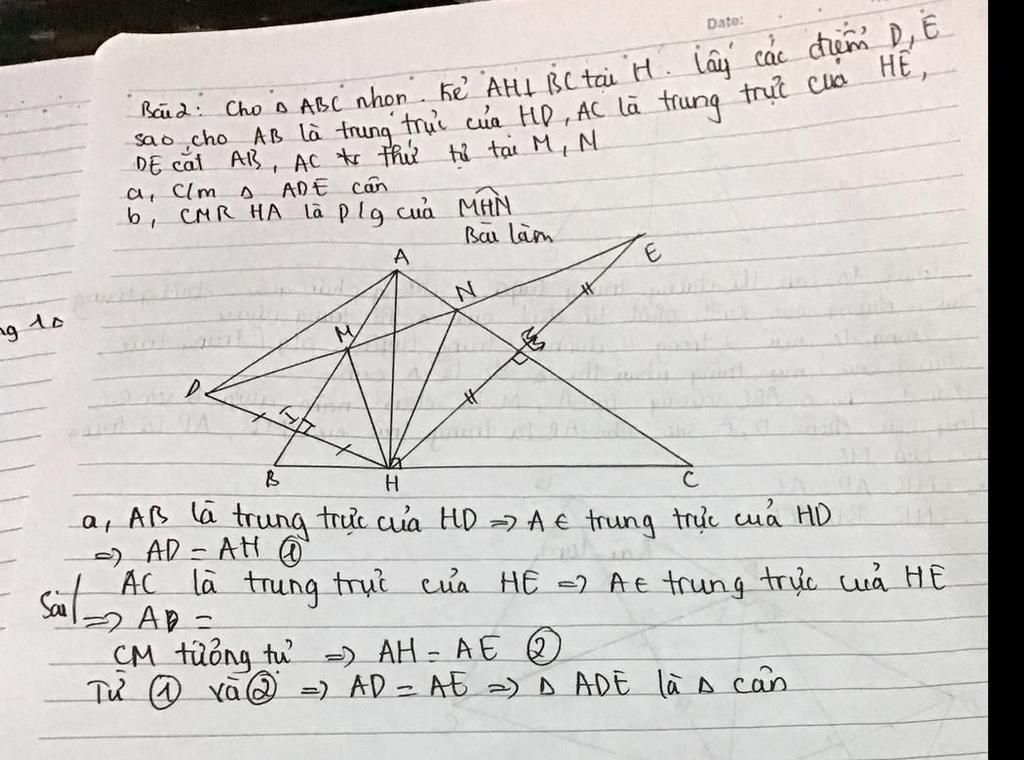 Date:
Bài 2: Cho △ ABC nhọn. Kẻ AH⊥ BC tại H. Lấy các điểm D, E
sao cho AB là trung trực của HD, AC là trung trực của HE,
DE cắt AB, AC thứ tự tại M, N
a, C/m △ ADE cân
b, CMR HA là p/g của MHN
Bài làm
A
E
N
M
D
B
H
C
ng 1△
a, AB là trung trực của HD => A ∈ trung trực cuả HD
=> AD = AH ①
AC là trung trực của HE => A ∈ trung trực cuả HE
Sai / => AD =
CM tương tự => AH = AE ②
Từ ① và ② => AD = AE => △ ADE là △ cân